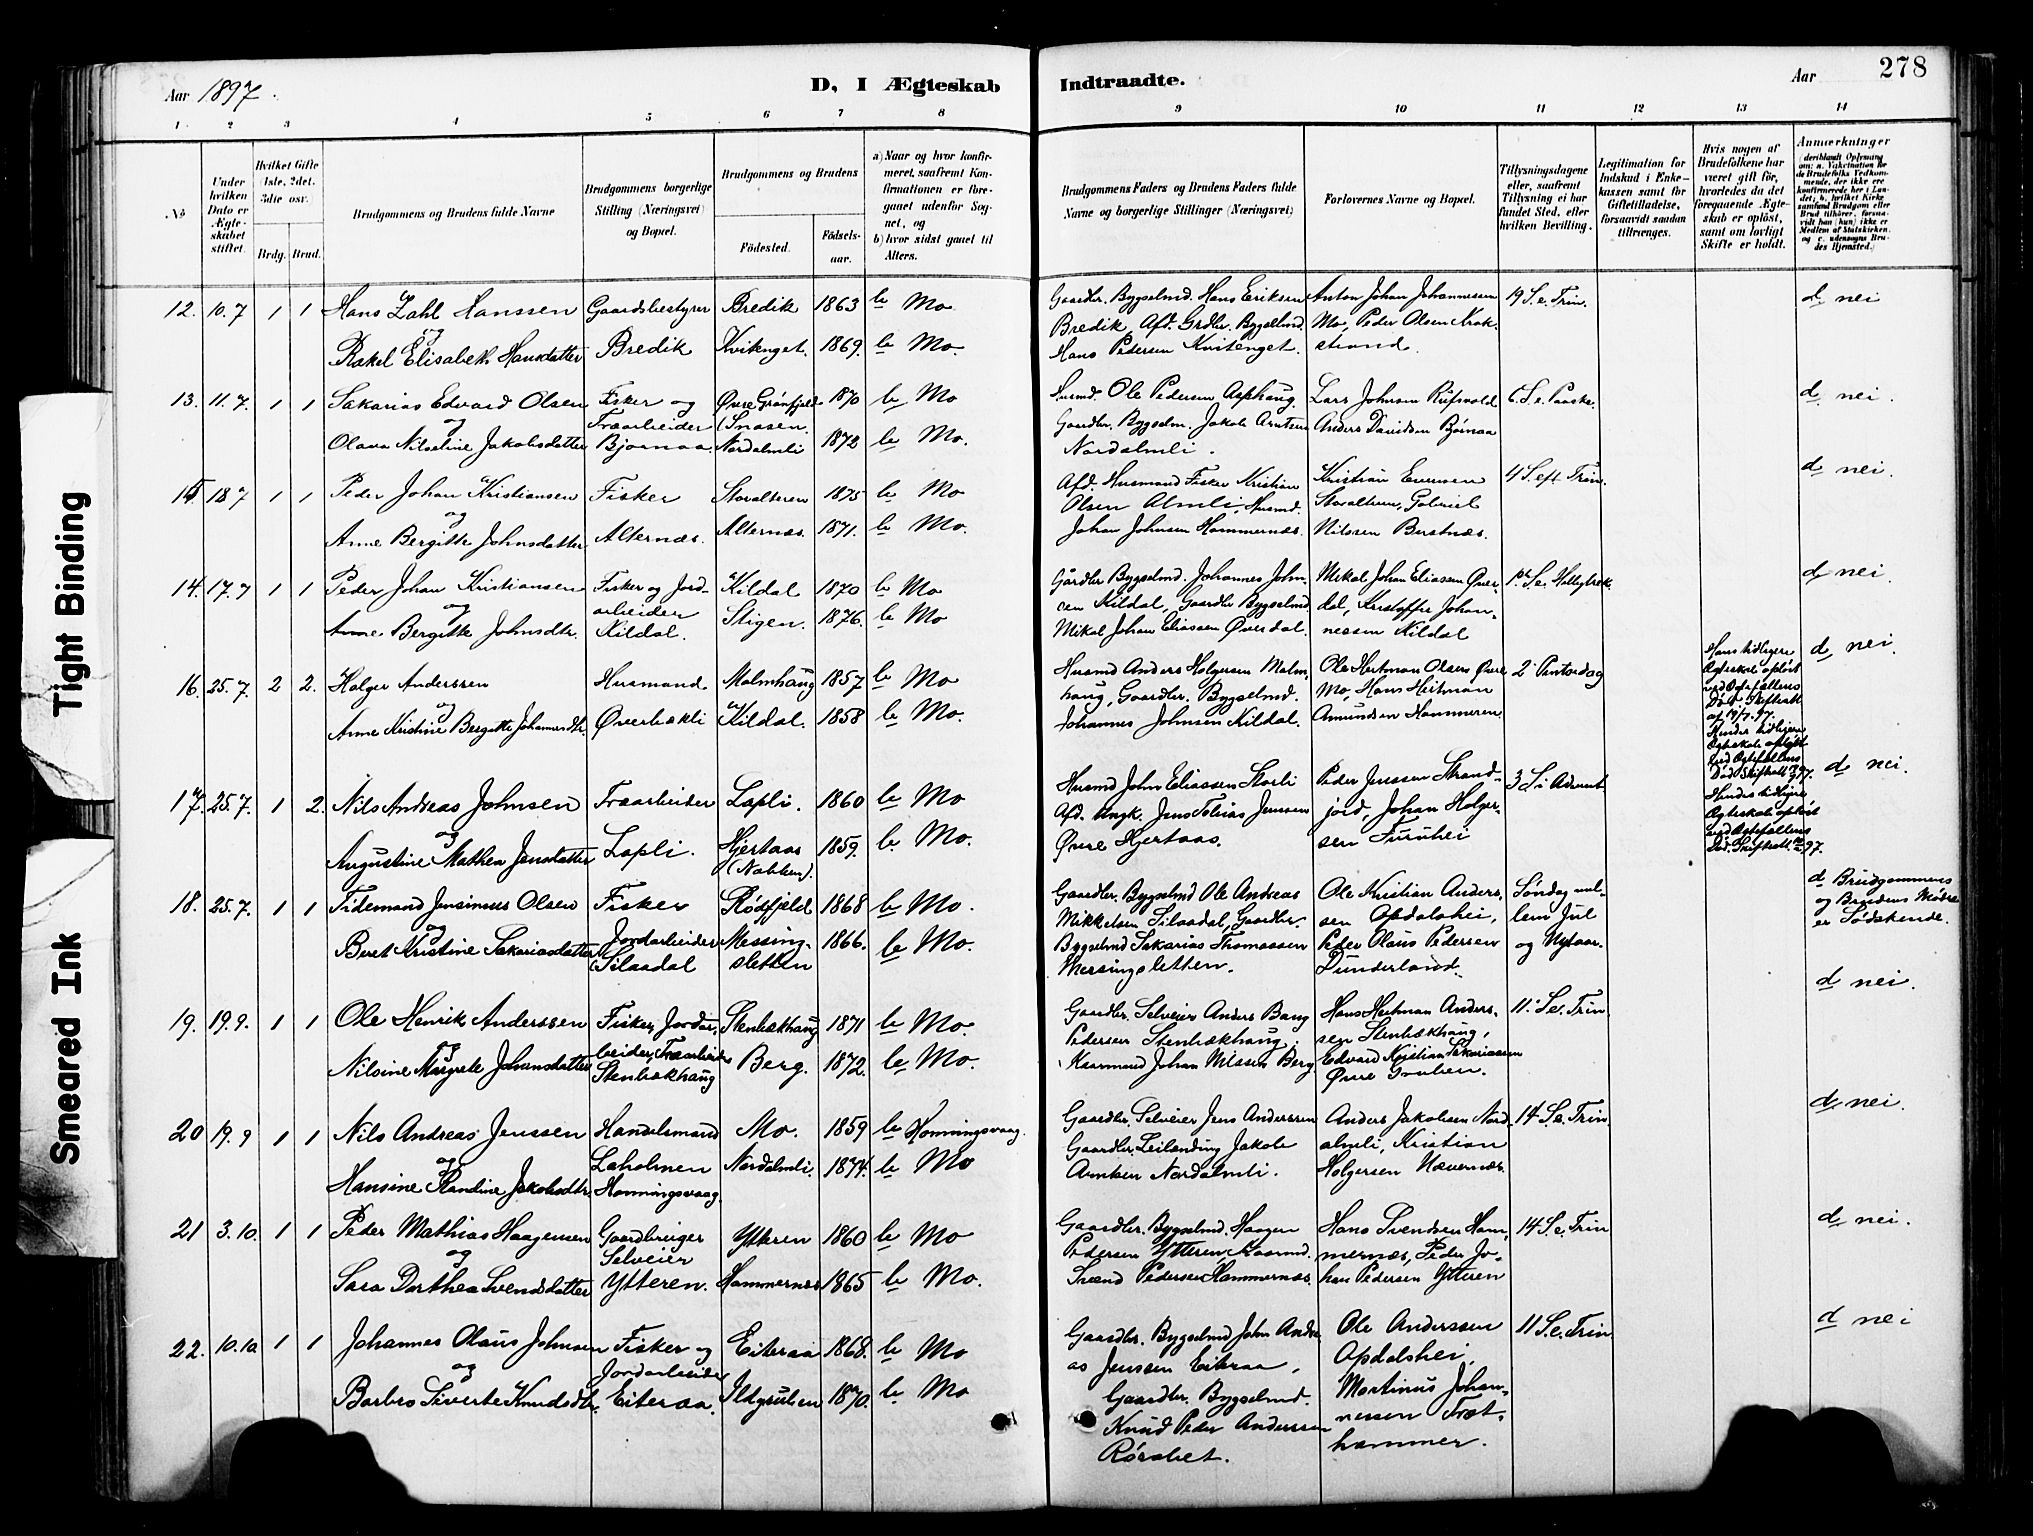 Aar 1897.
D, I Ægteskab Indtraadte.
Aar 278
1 2 3 4 5 6 7 8 9 10 11 12 13 14
No
Under hvilken Dato er Ægteskabet stiftet.
Hvilket Gifte (1ste, 2det, 3die osv.)
Brdg. Brud.
Brudgommens og Brudens fulde Navne
Brudgommens borgerlige Stilling (Næringsvei) og Bopæl.
Brudgommens og Brudens
Fødested.
Fødselsaar.
a) Naar og hvor konfirmeret, saafremt Konfirmationen er foregaaet udenfor Sognet, og
b) hvor sidst gaaet til Alters.
Brudgommens Faders og Brudens Faders fulde Navne og borgerlige Stillinger (Næringsvei)
Forlovernes Navne og Bopæl.
Tillysningsdagene eller, saafremt Tillysning ei har fundet Sted, efter hvilken Bevilling.
Legitimation for Indskud i Enkekassen samt for Giftetilladelse, forsaavidt saadan tiltrænges.
Hvis nogen af Brudefolkene har været gift før, hvorledes da det foregaaende Ægteskab er opløst, samt om lovligt Skifte er holdt.
Anmærkninger
12. 10.7 1 1 Hans Zahl Hanssen Gaardsbestyrer Bredik 1863 b Mo
og
Rakel Elisabeth Hansdatter Bredik Kvitenget. 1869. b Mo.
Gaardbr. Bygselmd. Hans Eriksen
Bredik, Afd. Grdbr. Bygselmd.
Hans Pedersen Kvitenget.
Anton Johan Johannesen
Mo, Peder Olsen Krok-
strand.
19 S. e. Trin.
d nei
13. 11.7. 1 1 Sakarias Edvard Olsen Fisker og Øvre Grønfjeld 1870 b Mo
og Træarbeider (Snasen.
Olava Nilseline Jakobsdatter Bjørnaa. Nordalmli 1872 b Mo.
Husmd. Ole Pedersen Asphaug.
Gaardbr. Bygselm. Jakob Arntsen
Nordalmli.
Lars Johnsen
Anders Davidsen Bjørnaa
6. S. e. Paaske.
d nei.
15 18 7 1 1 Peder Johan Kristiansen Fisker Storalteren 1875 b Mo
og
Anne Bergitte Johnsdatter Alternæs. Alternæs. 1871. b Mo.
Afd. Husmand Fisker Kristian
Olsen Almli, Husmd.
Johan Johnsen Hammernæs.
Kristian Evensen
Storalteren, Gabriel
Nilssen Bustnæs.
4 S. eft Trin.
d nei.
14. 17.7 1 1 Peder Johan Kristiansen Fisker og Jord- Kildal 1870 b Mo
og arbeider
Anne Bergitte Johnsdtr. Kildal. Stigen. 1876. b Mo
Gårdbr Bygselmd. Johannes John-
sen Kildal, Gaardbr Bygselmd
Mikal Johan Eliassen Øverdal.
Mikal Johan Eliassen Øver-
dal, Kristoffer Johan-
nessen Kildal
d nei.
16. 25.7. 2 2. Holger Anderssen Husmand Malmhaug 1857 b Mo
og
Anne Kristine Bergitte Johannesdtr. Øverbækli Kildal. 1858 b Mo.
Husmd Anders Holgersen Malm-
haug, Gaardbr. Bygselmd.
Johannes Johnsen Kildal.
Ole Heitman Olsen Øvre
Mo, Hans Heitman
Amundsen Hammeren.
2 Pintsedag
Hans tidligere
Ægteskab opløst
ved Ægtefællens
Død. Skifteatt.
af 14/7. 97.
Hendes tidligere
Ægteskab opløst
ved Ægtefællens
Død Skifteatt.
d nei.
17. 25.7. 1 2. Nils Andreas Johnsen Træarbeider Lapli. 1860 b Mo
og
Augustine Mathea Jensdatter Lapli. Hjertaas 1859. b Mo.
Husmd John Eliassen Storli
Afd. Ungk. Jens Tobias Jenssen
Øvre Hjertaas.
Peder Jenssen Strand-
jord, Johan Holger-
sen Furuhei
3 S. i Advent
Hendes tidligere
Ægteskab opløst
ved Ægtefællens
Død. Skifteatt. 97.
d nei.
18. 25.7. 1 1 Tidemand Jensinius Olsen Fisker Rødfjeld 1868 b Mo.
og Jordarbeider
Beret Kristine Sakariasdatter Silaadal Messing- 1866. b Mo.
sletten
Gaardbr. Bygselmd Ole Andreas
Mikkelsen Silaadal, Gaardbr.
Bygselmd Sakarias Thomassen
Messingsletten.
Ole Kristian Anders-
sen Opdalshei,
Peder Olaus Pedersen
Dunderland.
Søndag mel-
lem Jul
og Nytaar.
d Brudgommens
og Brudens Mødre
er Sødskende.
19. 19.9. 1 1 Ole Henrik Anderssen Fisker, Jordar- Stenbækhaug 1871 b Mo.
og beider, Træarbeider
Nilsine Margrete Johansdatter Stenbækhaug Berg. 1872. b Mo.
Gaardbr. Selveier Anders Bang
Pedersen Stenbækhaug.
Kaarmand Johan Nilssen Berg
Hans Heitman Anders-
sen Stenbækhaug,
Edvard Kristian Sakariassen
Øvre Gruben.
11. S. e. Trin.
d nei.
20 19.9 1 1 Nils Andreas Jenssen Handelsmand Mo. 1859 b Honningsvaag.
og Laholmen
Hansine Randine Jakobsdtr. Honningsvaag. Nordalmli. 1874. b Mo
Gaardbr. Selveier Jens Anderssen
Gaardbr. Leilending Jakob
Arntsen Nordalmli.
Anders Jakobsen Nord-
almli, Kristian
Holgersen Nævernæs.
14 S. e. Trin.
d nei.
21 3.10. 1 1 Peder Mathias Haagensen Gaardbruger Ytteren 1860 b Mo
og Selveier
Sara Dorthea Svendsdatter Ytteren. Hammernæs 1865 b Mo.
Gaardbr. Bygselmd. Haagen
Pedersen Ytteren, Kaarmd.
Svend Pedersen Hammernæs.
Hans Svendsen Ham-
mernæs, Peder Jo-
han Pedersen Ytteren
14. S. e. Trin
d nei.
22. 10.10 1 1 Johannes Olaus Johnsen Fisker og Eiteraa 1868. b Mo
og Jordarbeider
Barbro Siverte Knudsdtr. Eiteraa. Ildgruben 1870. b Mo
Gaardbr. Bygselmd John Andre-
as Jenssen Eiteraa,
Gaardbr. Bygselmd.
Knud Peder Anderssen
Ole Anderssen
Opdalshei,
Martinus Johan-
nessen Træt-
hammer.
11 S. e. Trin
d nei
Tight Binding
Smeared Ink